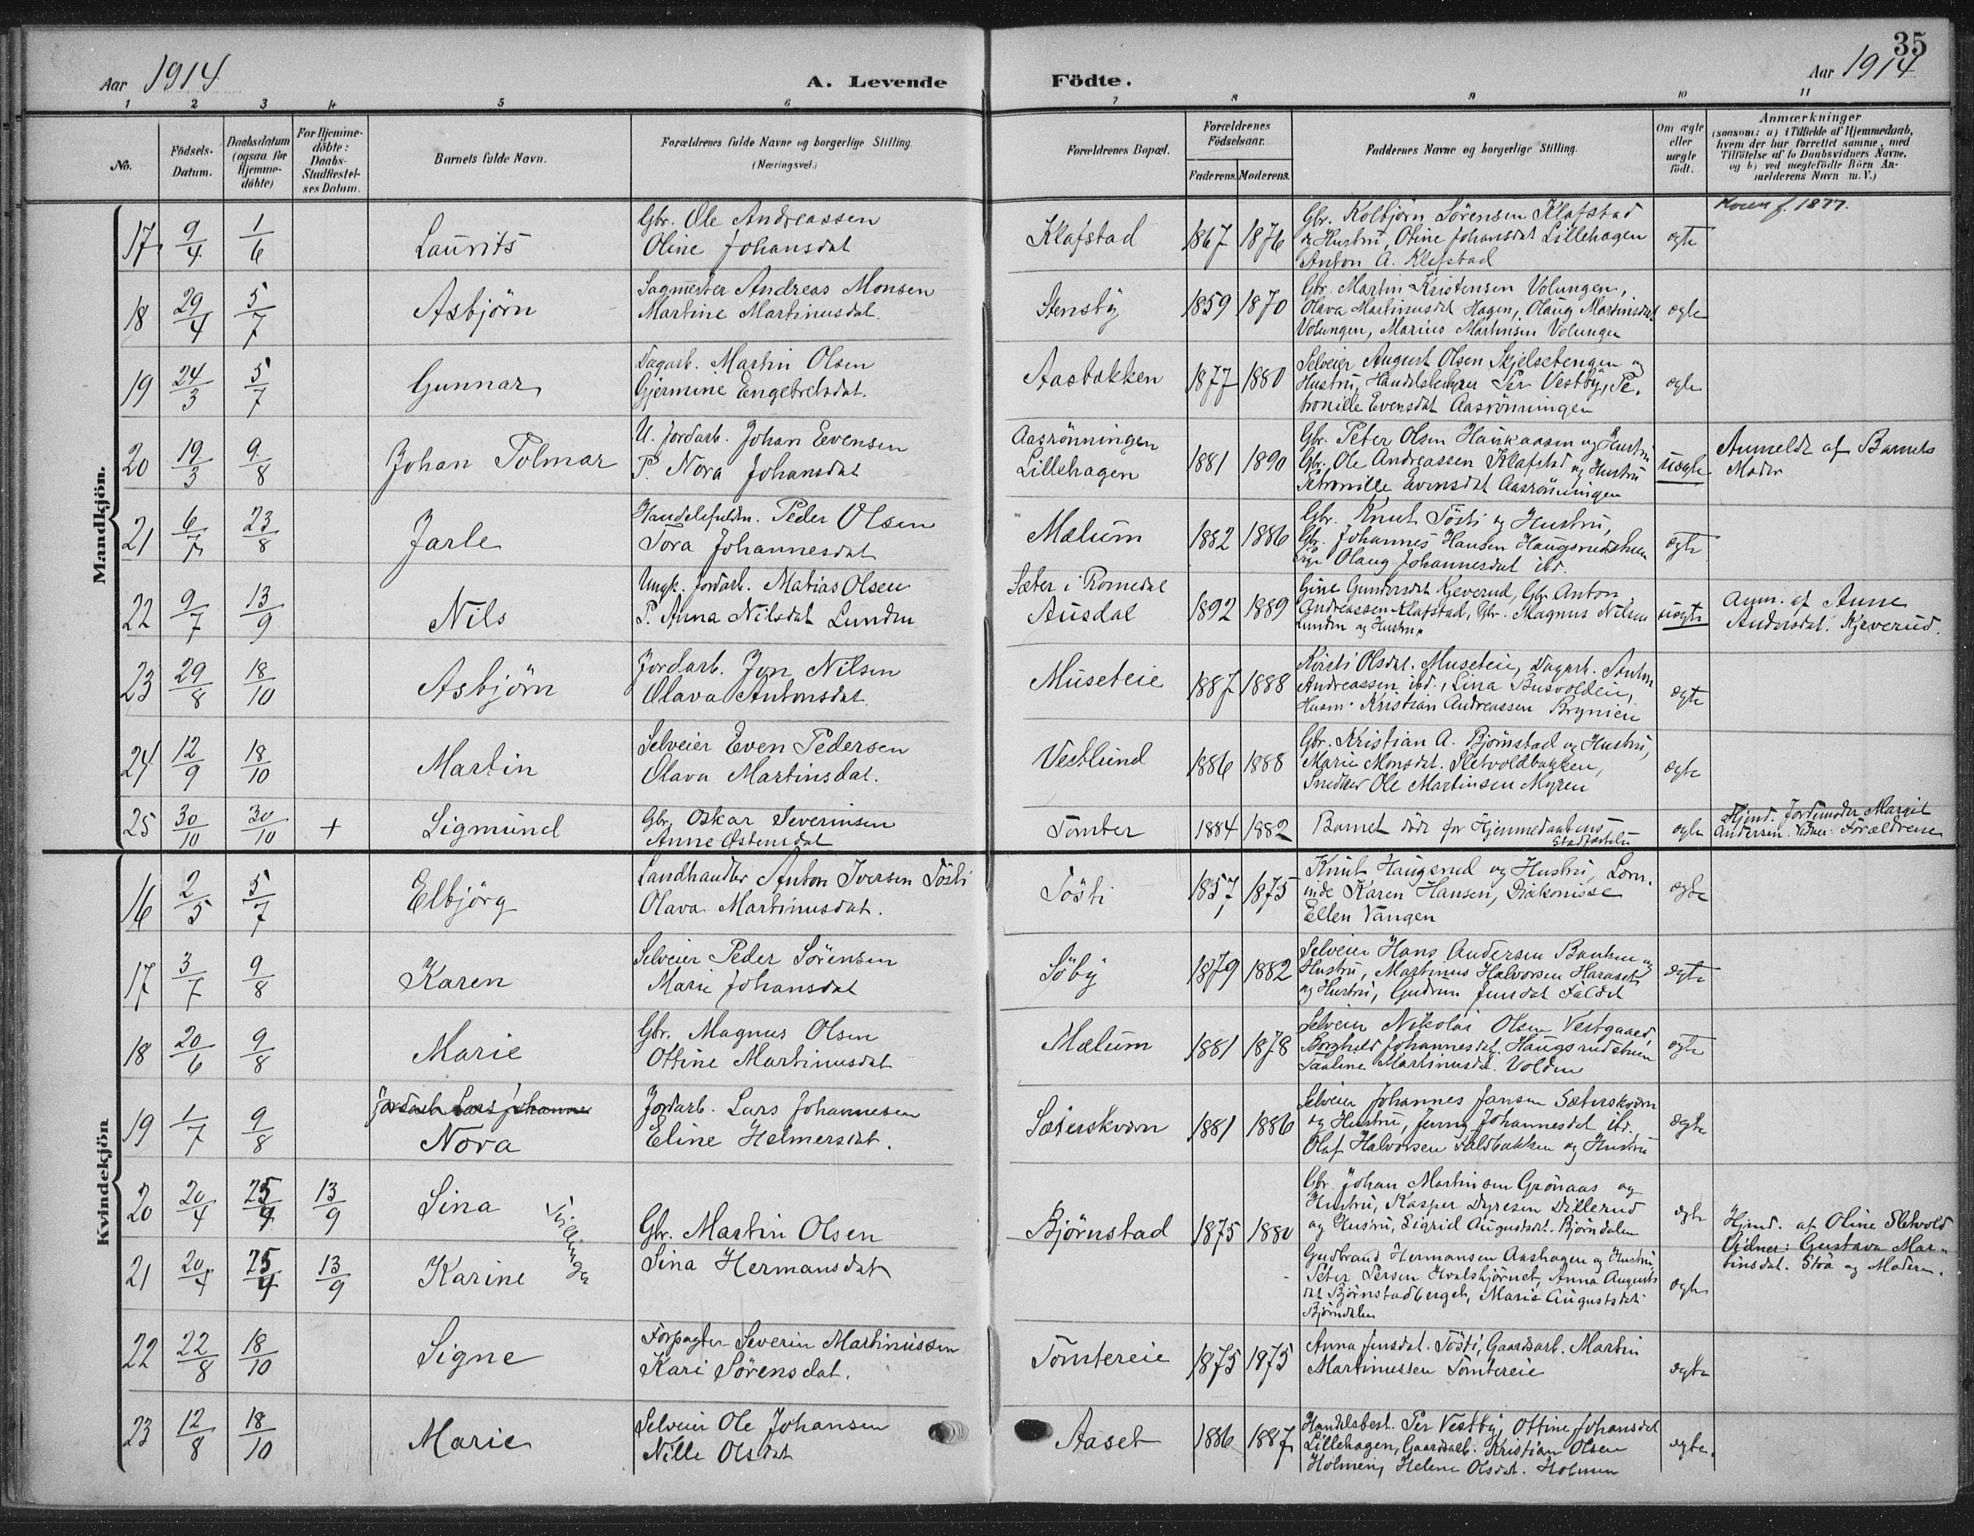 35
Aar 1914
A. Levende Födte.
Aar 1914
1 2 3 4 5 6 7 8 9 10 11
No.
Födsels-Datum.
Daabsdatum (ogsaa for Hjemme-döbte)
For Hjemme-döbte: Daabs-Stadfæstel-ses Datum.
Barnets fulde Navn.
Forældrenes fulde Navne og borgerlige Stilling. (Næringsvei.)
Forældrenes Bopæl.
Forældrenes Födselsaar.
Faderens. Moderens.
Faddernes Navne og borgerlige Stilling.
Om ægte eller uægte födt.
Anmærkninger
(saasom: a) i Tilfælde af Hjemmedaab,
hvem der har forrettet samme, med
Tilföielse af to Daabsvidners Navne,
og b) ved uægtefödte Börn An-
melderens Navn m. V.)
Mandkjön.
17 9/4 1/6 Laurits
Gbr. Ole Andreassen
Oline Johansdat
Klafstad 1867 1876
Gbr. Kolbjörn Sörensen Klafstad
og Hustru, Otine Johansdat Lillehagen
Anton A. Klafstad
ægte
f. 1877.
18 29/4 5/7 Asbjörn
Sagmester Andreas Monsen
Martine Martinusdat.
Stensby 1859 1870
Gbr. Martin Kristensen Volungen,
Olava Martinusdat Hagen, Olaug Martinsdat
Volungen, Marius Martinsen Volungen
ægte
19 24/3 5/7 Gunnar
Dagarb. Martin Olsen
Gjermine Engebretsdat.
Aasbakken 1877 1880
Selveier August Olsen Skjelsetengen og
Hustru, Handelsbestyrer Per Vestby, Pe-
tronille Evensdat Aasrönningen
ægte
20 19/3 9/8 Johan Tolmar
U. Jordarb. Johan Evensen
P. Nora Johansdat
Aasrönningen
Lillehagen
1881 1890
Gbr. Peter Olsen Haukaasen og Hustru
Gbr. Ole Andreassen Klafstad og Hustru
Petronille Evensdat Aasrönningen
uægte
Anmeldt af Barnets
Moder
21 6/7 23/8 Jarle
Handelsfuldm. Peder Olsen
Tora Johannesdat
Mælum 1882 1886
Gbr. Knut Tösti og Hustru,
Gbr. Johannes Hansen Haugsrudstuen
Pige Olaug Johannesdat ibd.
ægte
22 9/7 13/9 Nils
Ungk. Jordarb. Matias Olsen
P. Anna Nilsdat Lunden
Sæter i Romedal
Ausdal
1892 1889
Gine Gundersdat Kjeverud, Gbr. Anton
Andreassen Klafstad, Gbr. Magnus Nilsen
Lunden og Hustru
uægte
Anm. af Anne
Andersdat. Kjeverud.
23 29/8 18/10 Asbjörn
Jordarb. Jon Nilsen
Olava Antonsdat
Museteie 1887 1888
Kirsti Olsdat. Museteie, Dagarb. Anton
Andreassen ibd., Lina Busvoldeie,
Husm. Kristian Andreassen Brynieie
ægte
24 12/9 18/10 Martin
Selveier Even Pedersen
Olava Martinsdat.
Vestlund 1886 1888
Gbr. Kristian A. Björnstad og Hustru,
Marie Monsdat. Sletvoldbakken,
Snedker Ole Martinsen Myren
ægte
25 30/10 30/10 + Sigmund
Gbr. Oskar Severinsen
Anne Ostensdat
Tomter 1884 1882
Barnet döde för Hjemmedaabens
Stadfæstelse
ægte
Hjmd. Jordemoder Margit
Andersen. Vidner: Forældrene
Kvindekjön
16 2/5 5/7 Elbjörg
Landhandler Anton Iversen Tösti
Olava Martinusdat.
Tösti 1857 1875
Knut Haugsrud og Hustru,
Karen Hansen, Diakonisse
Ellen Vangen
ægte
17 3/7 9/8 Karen
Selveier Peder Sörensen
Marie Johansdat
Söby 1879 1882
Selveier Hans Andersen Banken og
Hustru, Martinus Halvorsen Haraset
og Hustru, Gudrun Jensdat Faldet
ægte
18 20/6 9/8 Marie
Gbr. Magnus Olsen
Ottine Martinusdat
Mælum 1881 1878
Selveier Nikolai Olsen Vestgaard,
Borghild Johannesdat. Haugsrudstuen
Pauline Martinusdat. Volden
ægte
Jordarb. Lars Johannes
19 1/7 9/8 Nora
Jordarb. Lars Johannesen
Eline Helmersdat.
Sæterskvern 1881 1886
Selveier Johannes Jansen Sæterskvern
og Hustru, Jenny Johannesdat ibd.
Olaf Halvorsen Faldbakken og Hustru
ægte
20 20/4 25/4 13/9 Sina
Tvillinger
Gbr. Martin Olsen
Sina Hermansdat
Björnstad 1875 1880
Gbr. Johan Martinsen Grönaas og
Hustru, Kasper Dyresen Dillerud
og Hustru, Sigrid Augustdat. Björndalen
ægte
Hjmd. af Oline Sletvold
Vidner: Gustava Mar-
tinsdat. Stöa og Moderen.
21 20/4 25/4 13/9 Karine
Gudbrand Hermansen Aashagen og Hustru
Peter Persen Hvalsbjörnet, Anna Augusts
dat Björnstadberget, Marie Augustsdat
Björndalen
ægte
22 22/8 18/10 Signe
Forpagter Severin Martinussen
Kari Sörensdat.
Tomtereie 1875 1875
Anna Jensdat. Tösti, Gaardsarb. Martin
Martinussen Tomtereie
ægte
23 12/8 18/10 Marie
Selveier Ole Johansen
Nille Olsdat
Aaset 1886 1887
Handelsbest. Per Vestby, Ottine Johansdat
Lillehagen, Gaardsarb. Kristian Olsen
Holmen, Helene Olsdat. Holmen
ægte.